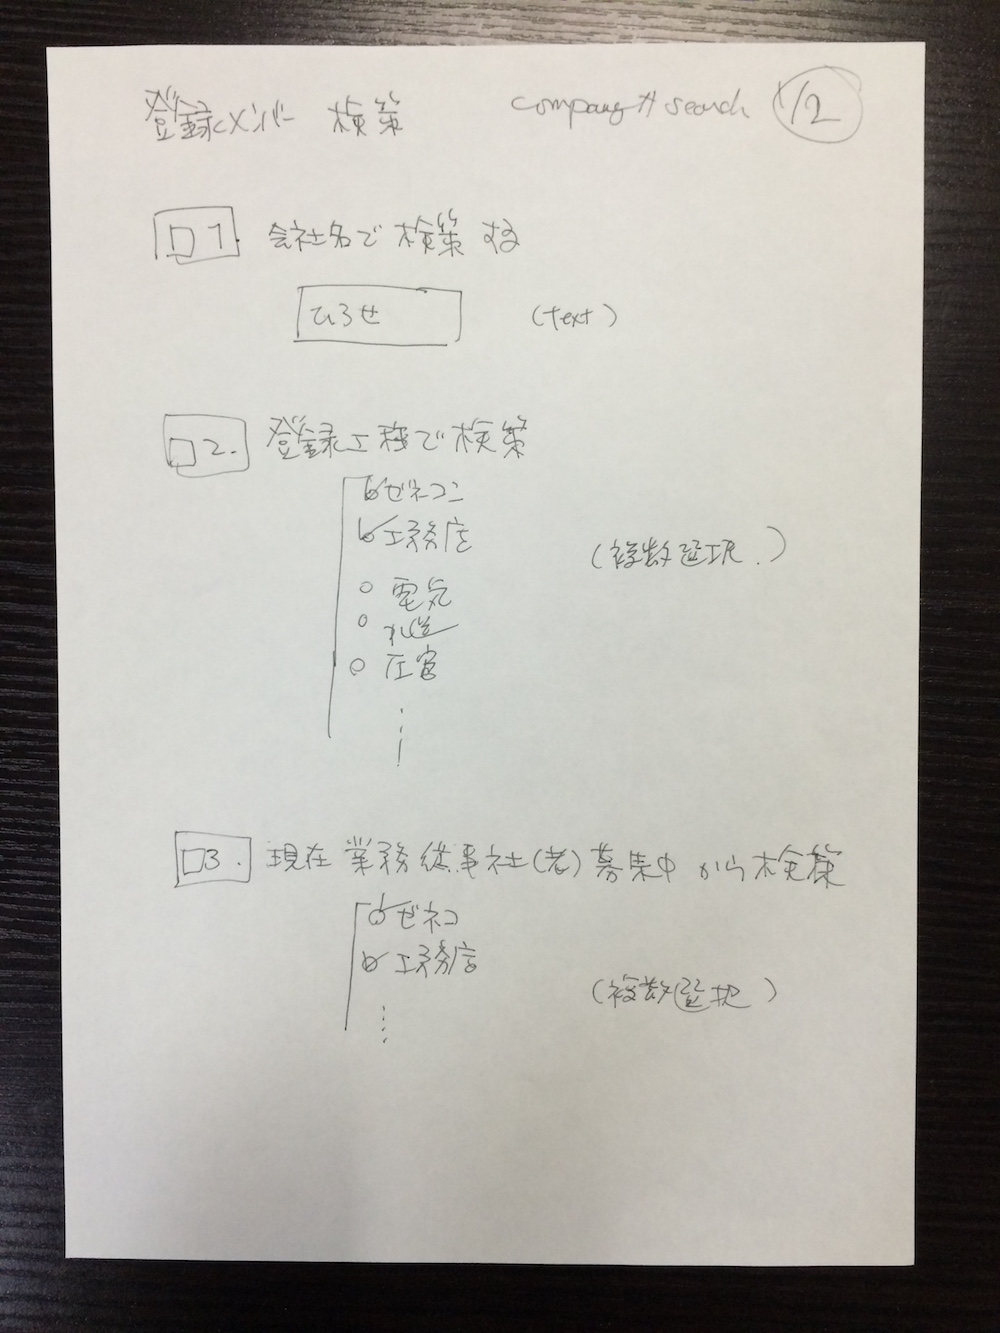 登録メンバー 検策 company#search 1/2
□1. 会社名で検策する
ひろせ (text)
□2. 登録工種で検策
ゼネコン
工務店
(複数選択.)
○ 電気
○ 水道
○ 圧官
□3. 現在業務従事社(者)募集中から検策
ゼネコ
工務店
(複数選択)